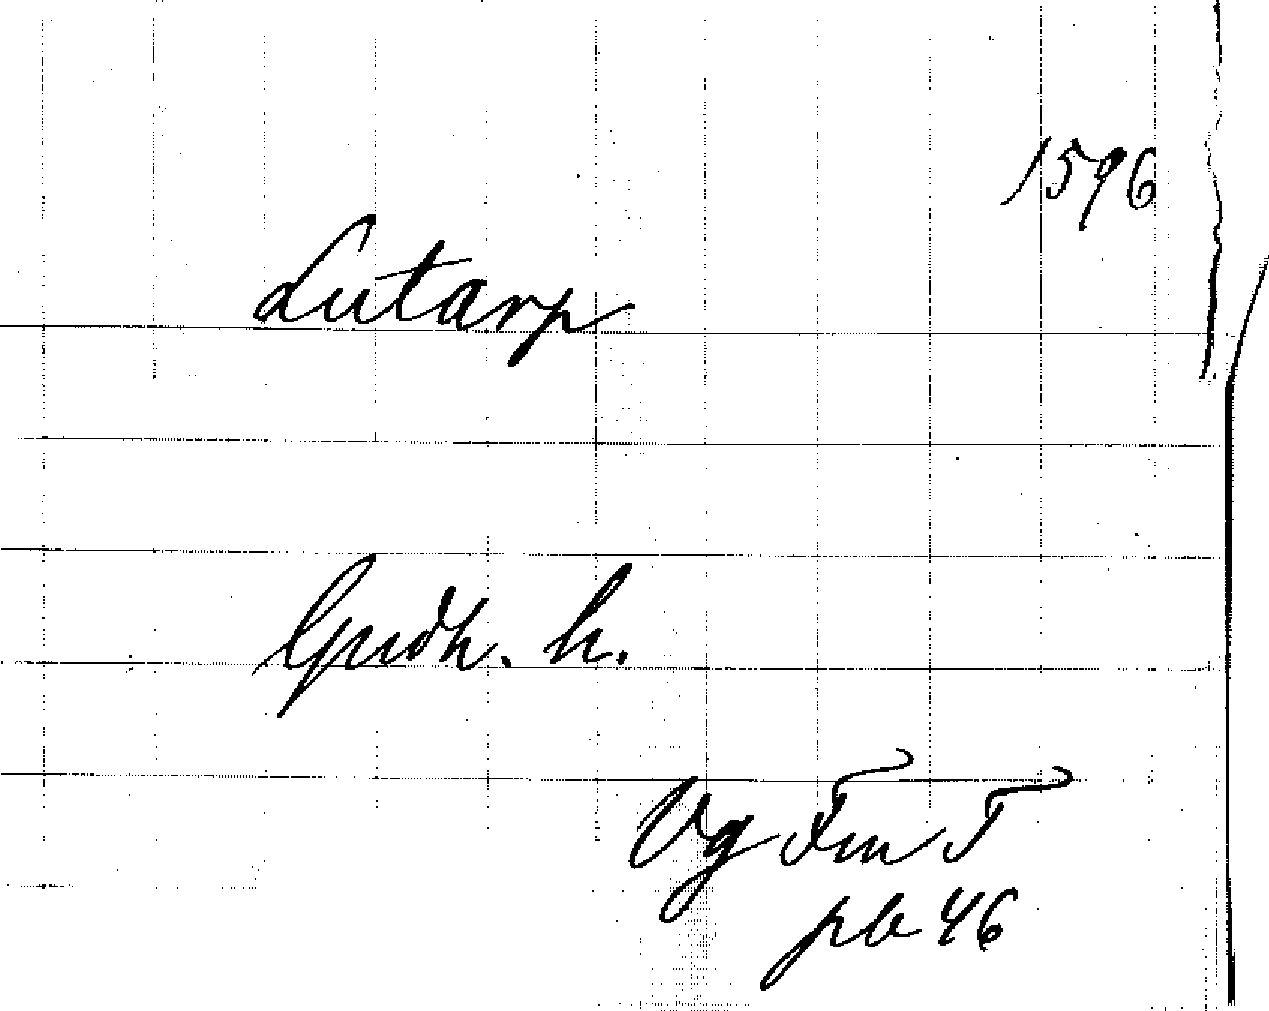 1596
Lutarp
Gudh. h.
Vg Fm T
pb 46